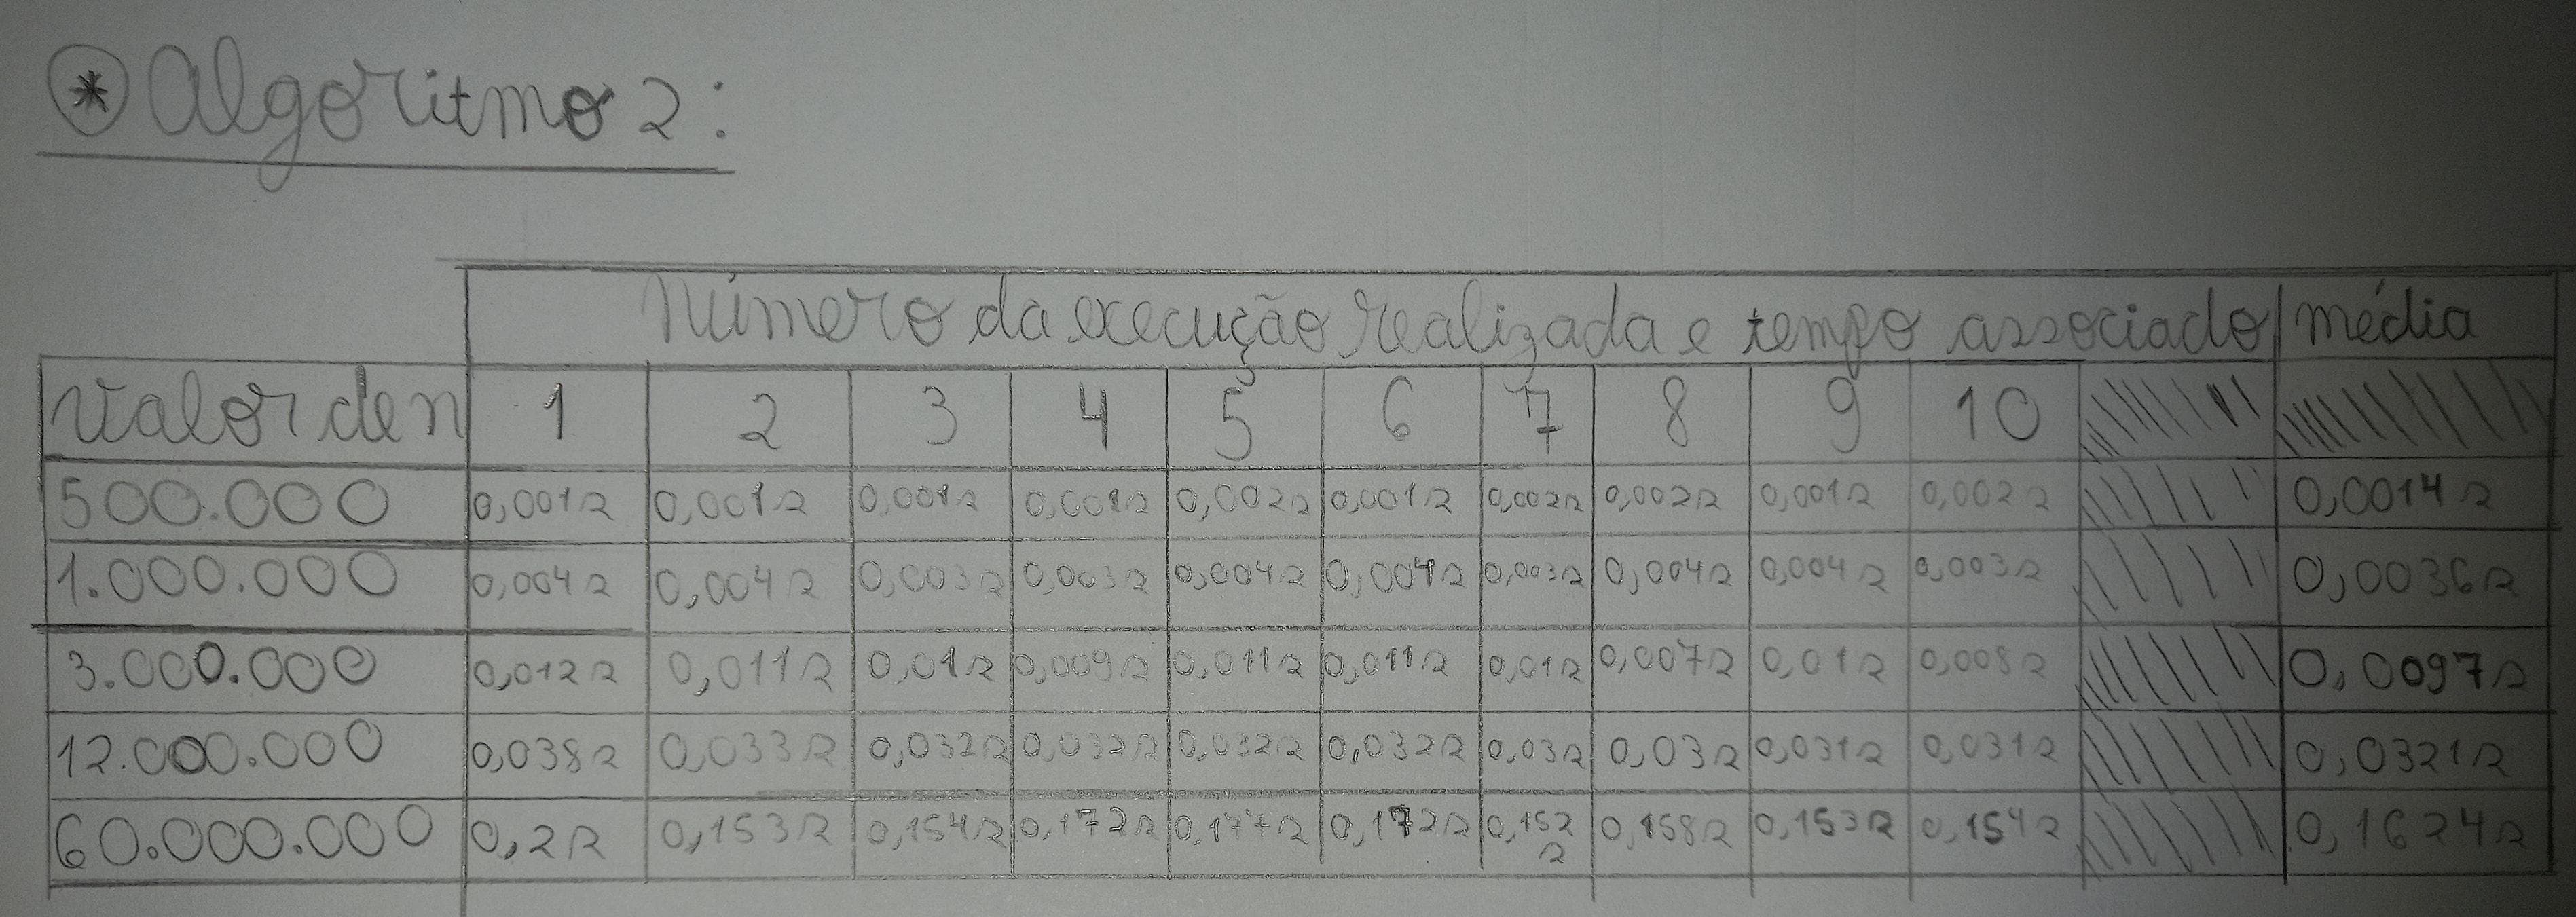 * Algoritmo 2:
Número da execução realizada e tempo associado média
Valor de n 1 2 3 4 5 6 7 8 9 10
500.000 0,001s 0,001s 0,001s 0,001s 0,002s 0,001s 0,002s 0,002s 0,001s 0,002s 0,0014s
1.000.000 0,004s 0,004s 0,003s 0,003s 0,004s 0,004s 0,003s 0,004s 0,004s 0,003s 0,0036s
3.000.000 0,012s 0,011s 0,01s 0,009s 0,011s 0,011s 0,01s 0,007s 0,01s 0,008s 0,0097s
12.000.000 0,038s 0,033s 0,032s 0,032s 0,032s 0,032s 0,03s 0,03s 0,031s 0,031s 0,0321s
60.000.000 0,2s 0,153s 0,154s 0,172s 0,177s 0,172s 0,152s 0,158s 0,153s 0,154s 0,1624s